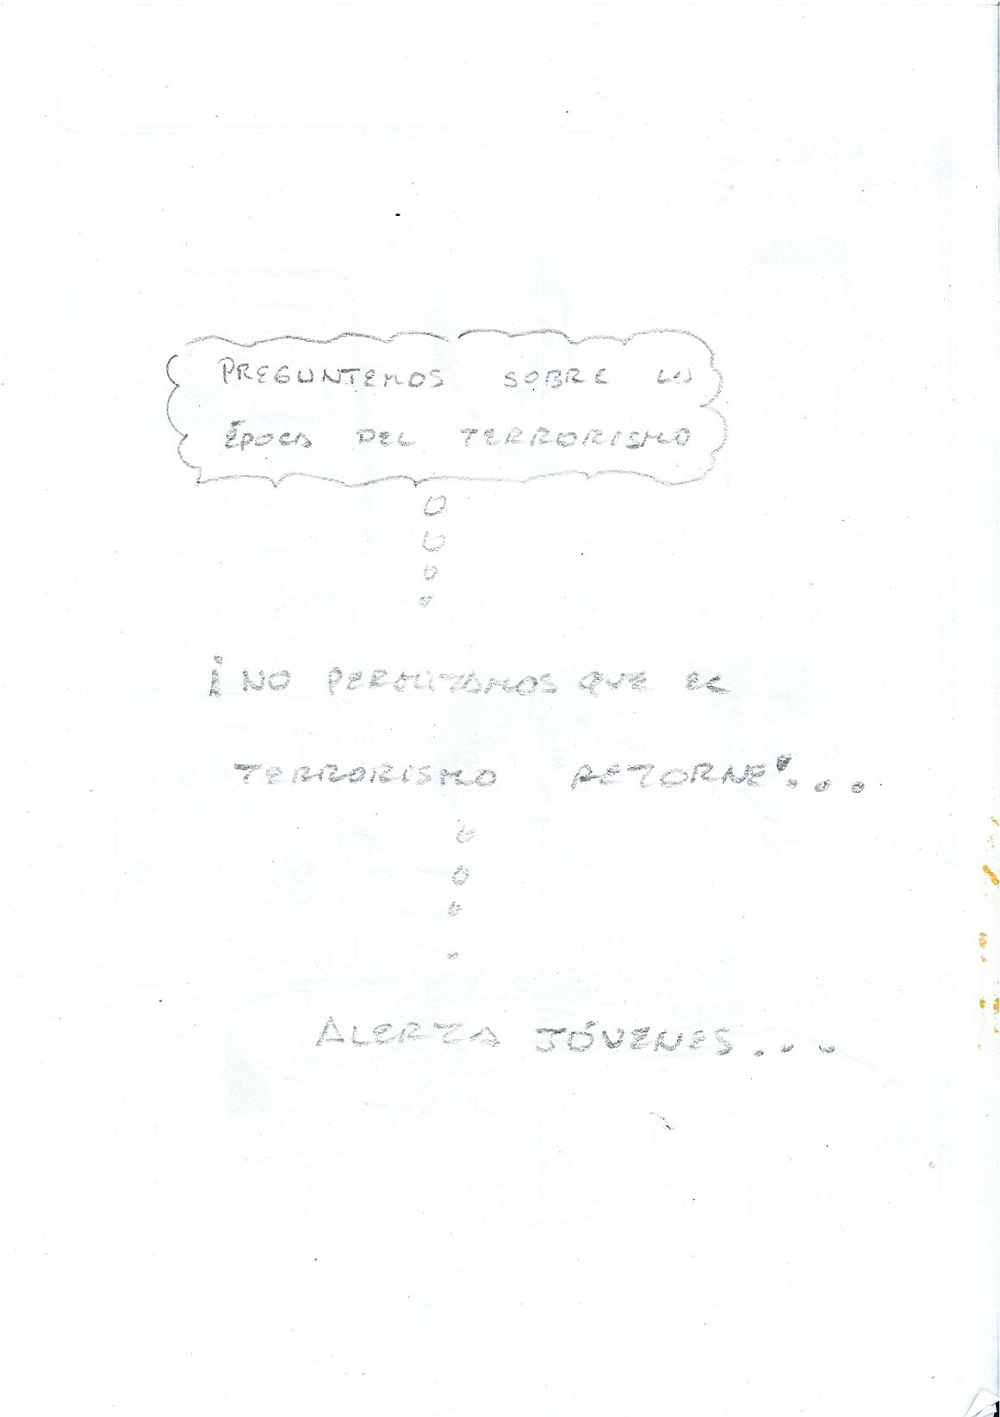 PREGUNTEMOS SOBRE LA
ÉPOCA DEL TERRORISMO
¡NO PERMITAMOS QUE EL
TERRORISMO RETORNE!...
ALERTA JÓVENES...